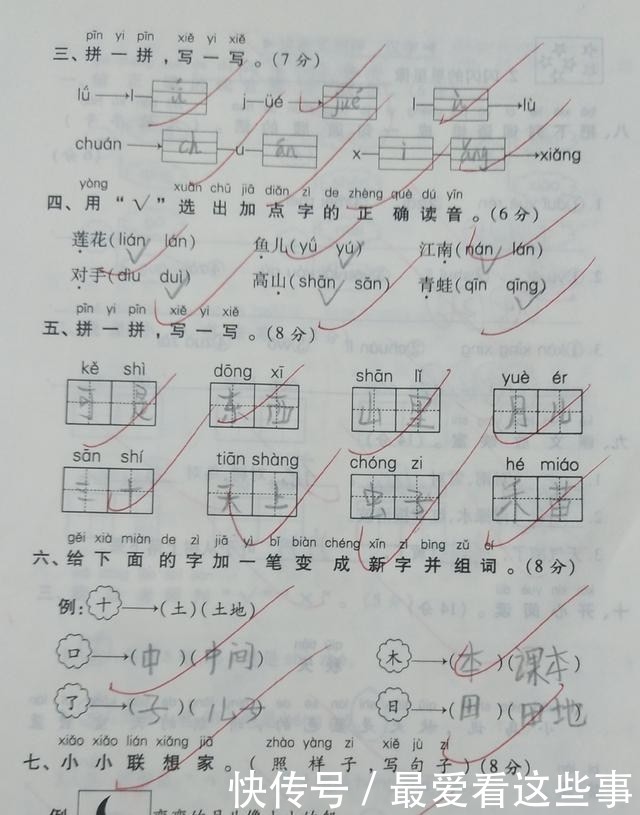 pīn yi pīn xiě yi xiě
三、拼一拼,写一写。(7分)
lǘ→l—ǘ j—üé→jué l—ù→lù
chuán→ch—u—án x—i—ǎng→xiǎng
yòng xuǎn chū jiā diǎn zì de zhèng què dú yīn
四、用“√”选出加点字的正确读音。(6分)
莲花(lián lán) 鱼儿(yǔ yú) 江南(nán lán)
对手(dìu duì) 高山(shān sān) 青蛙(qīn qīng)
pīn yi pīn xiě yi xiě
五、拼一拼,写一写。(8分)
kě shì dōng xī shān lǐ yuè ér
可是 东西 山里 月儿
sān shí tiān shàng chóng zi hé miáo
三十 天上 虫子 禾苗
gěi xià miàn de zì jiā yì bǐ biàn chéng xīn zì bìng zǔ cí
六、给下面的字加一笔变成新字并组词。(8分)
例:十→(土)(土地)
口→(中)(中间) 木→(本)(课本)
了→(子)(儿子) 日→(田)(田地)
xiǎo xiǎo lián xiǎng jiā zhào yàng zi xiě jù zǐ
七、小小联想家。(照样子,写句子)(8分)
快传号/最爱看这些事